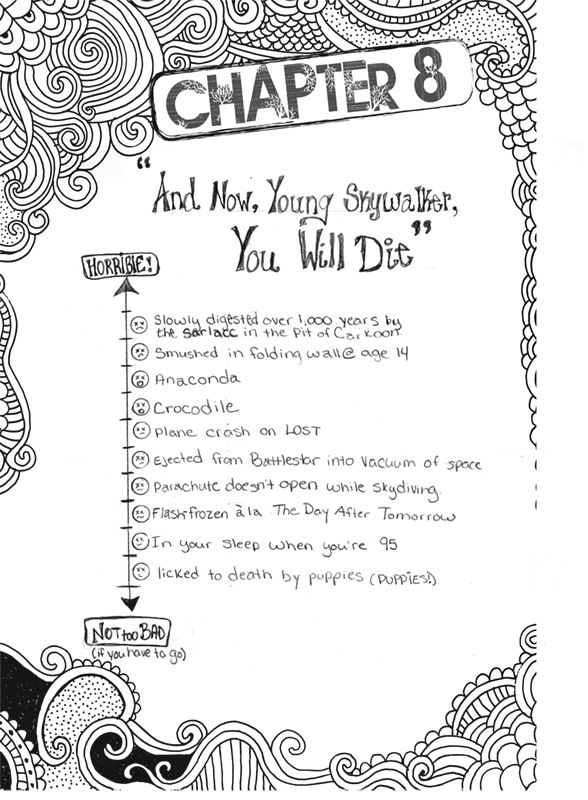 CHAPTER 8
"And Now, Young Skywalker,
You Will Die"
HORRIBLE!
Slowly digested over 1,000 years by
the sarlacc in the Pit of Carkoon.
Smushed in folding wall @ age 14
Anaconda
Crocodile
Plane crash on LOST
Ejected from Battlestar into vacuum of space
Parachute doesn't open while skydiving.
Flashfrozen à la The Day After Tomorrow
In your sleep when you're 95
licked to death by puppies (PUPPIES!)
NOT too BAD
(if you have to go)